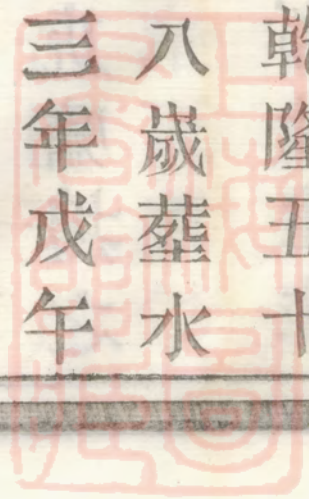 乾隆五十
八歲塟水
三年戊午